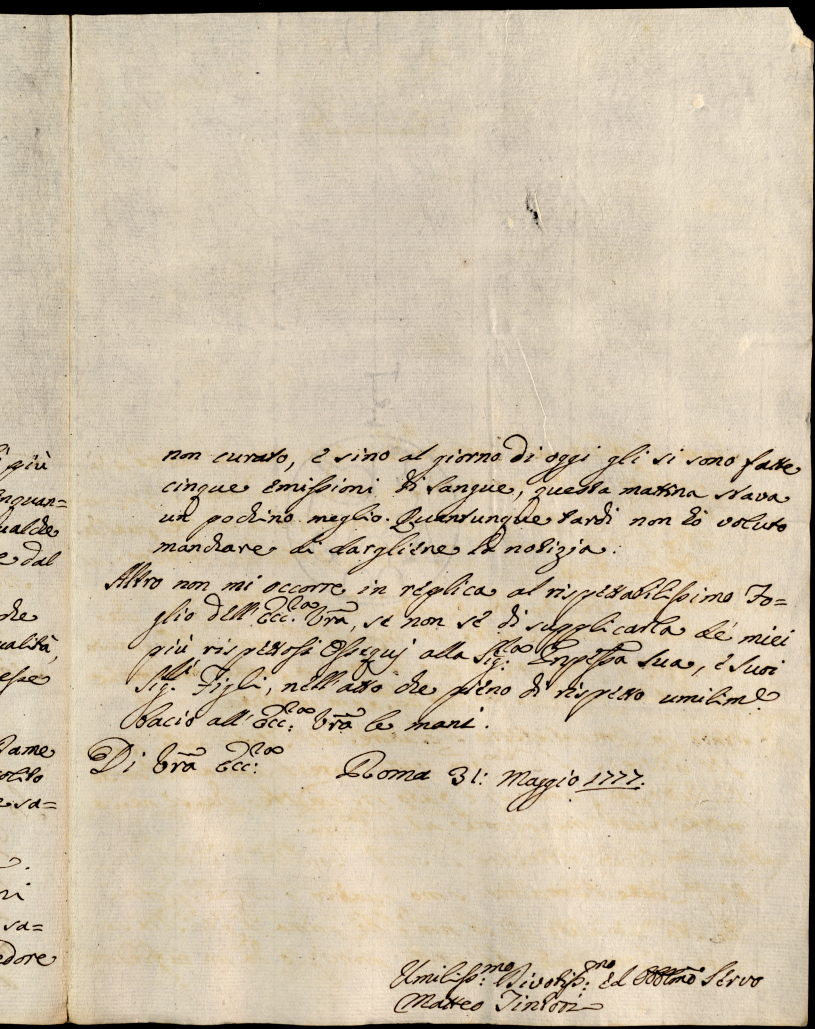 ì più
nquan=
ualche
e dal
che
ualità,
esse
Dame
olito
e sa=
ri
sa=
edore
non curato, e sino al giorno di oggi gli si sono fatte
cinque emissioni di sangue, questa mattina stava
un pochino meglio. Quantunque tardi non hò voluto
manchare di dargliene la notizia.
Altro non mi occorre in replica al rispettabilissimo Fo=
glio dell'Ecc:za Vrã, se non sè di supplicarla de' miei
più rispettosi Ossequj alla Sig:ra Pnpessa sua, e suoi
Sig:ri Figli, nell'atto che pieno di rispetto umilime
bacio all'Ecc:za Vrã le mani.
Di Vrã Ecc:za Roma 31: Maggio 1777.
Umiliss:mo Divotiss:mo ed Obblmõ Servo
Matteo